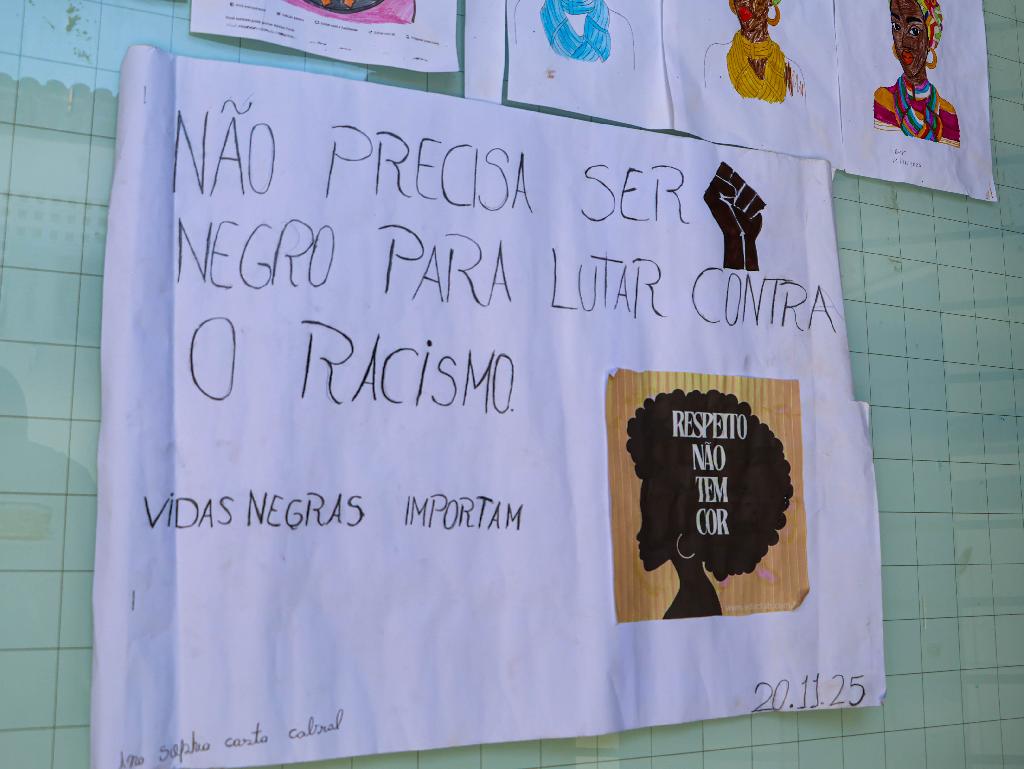 NÃO PRECISA SER
NEGRO PARA LUTAR CONTRA
O RACISMO.
RESPEITO
NÃO
TEM
COR
VIDAS NEGRAS IMPORTAM
20.11.25